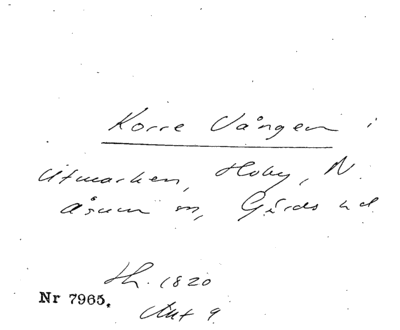 Korre Vången i
Utmarken, Hoby, N.
Åsum sn, Gärds hd
Lh. 1820
Nr 7965.
Akt 9